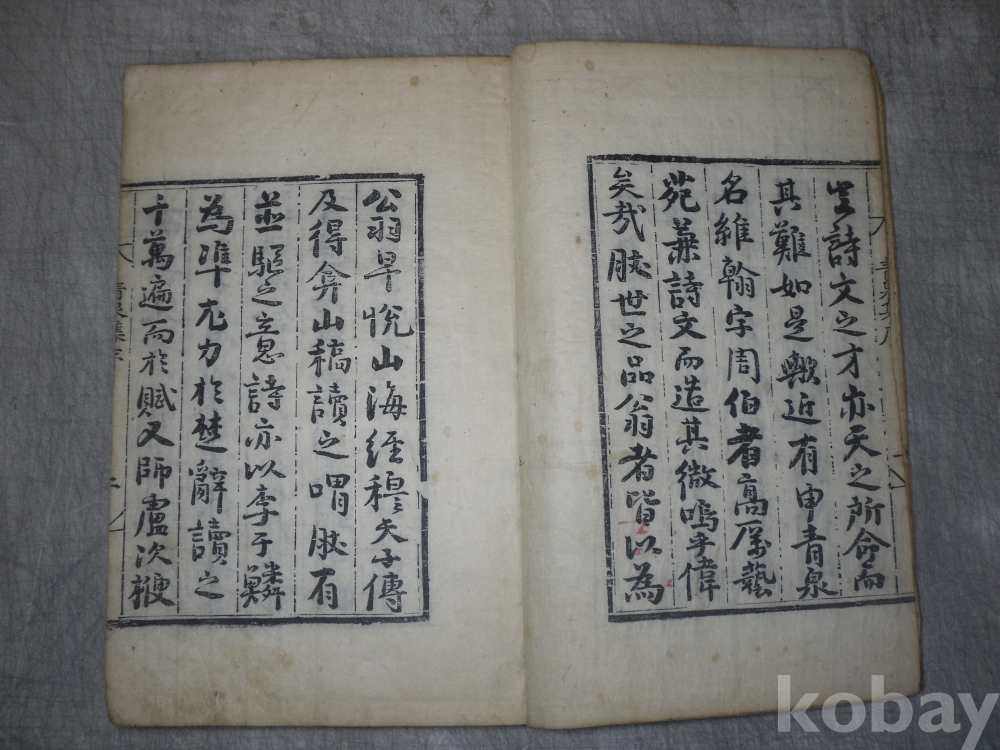 豈詩文之才亦天之所命而
其難如是歟近有申青泉
名維翰字周伯者高厲藝
苑兼詩文而造其微嗚乎偉
矣哉然世之品翁者皆以為
公翁早悅山海經穆天子傳
及得弇山稿讀之喟然有
並驅之意詩亦以李于鱗
為準尤力於楚辭讀之
千萬遍而於賦又師盧次楩
青泉集序
kobay